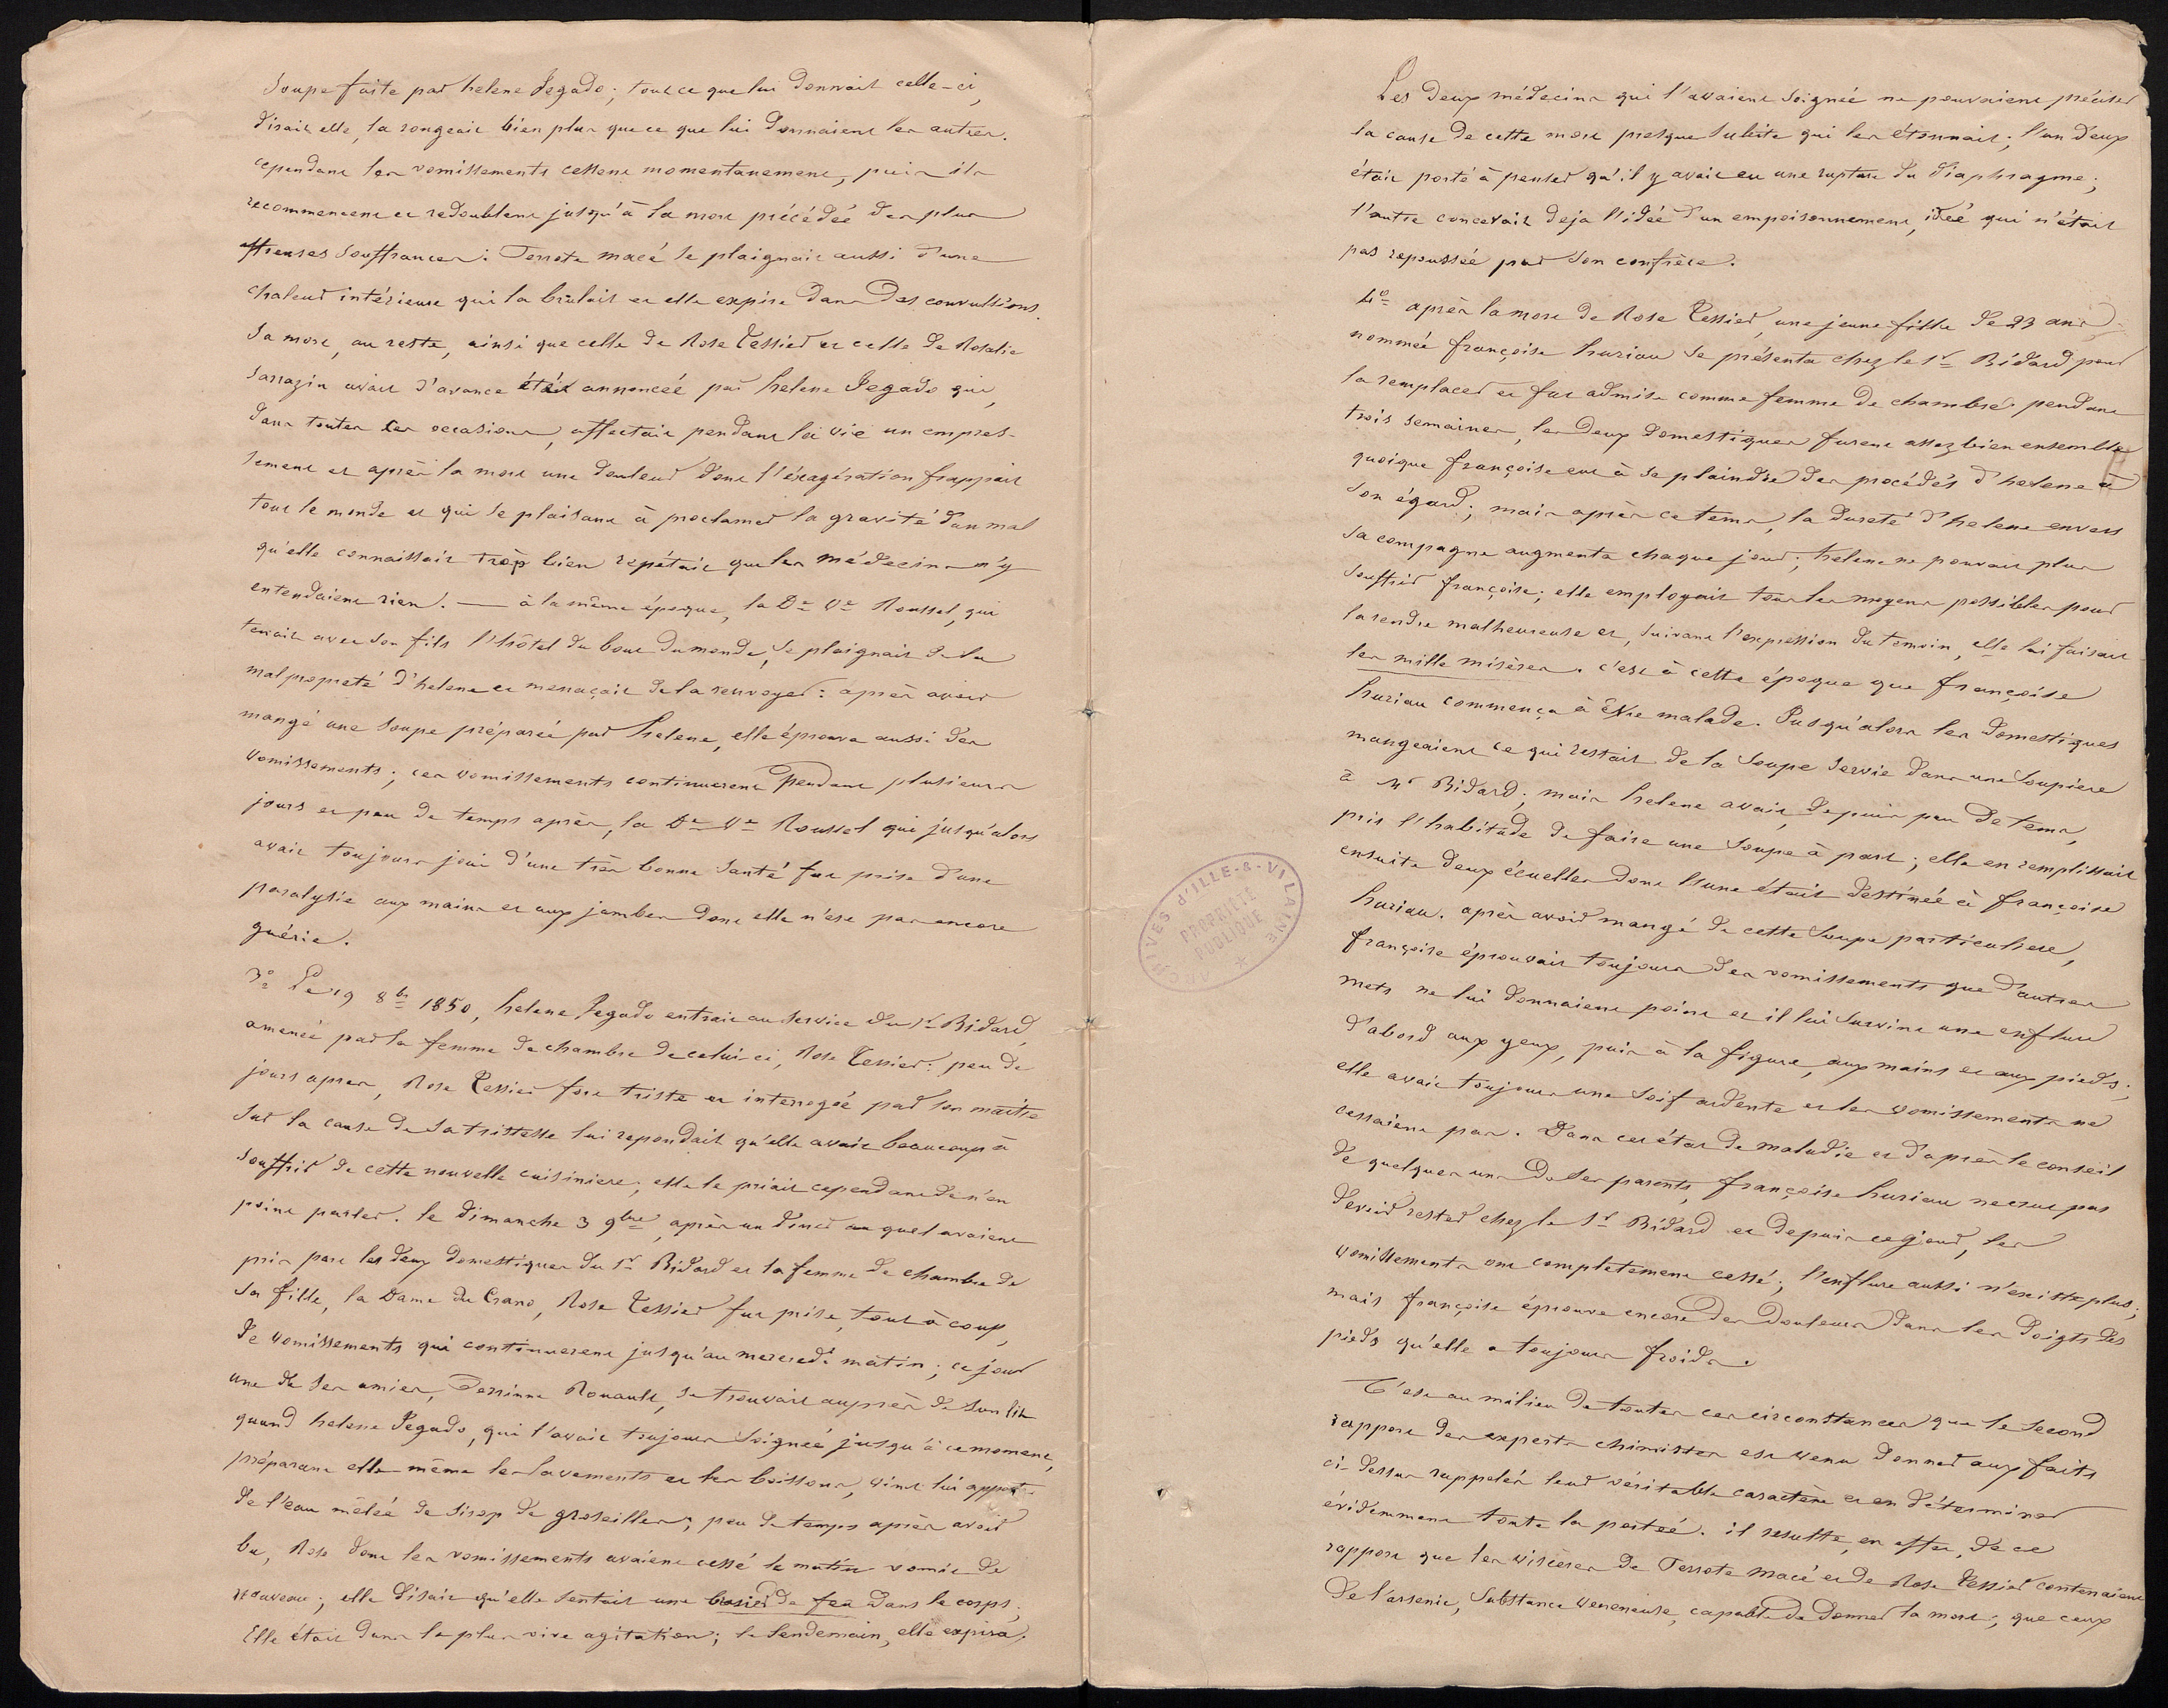 Soupe faite par helene Jegado; tout ce que lui donnait celle-ci,
disait elle, la rongeait bien plus que ce que lui donnaient les autres.
cependant les vomissements cessent momentanement, puis ils
recommencent et redoublent jusqu'à la mort précédée des plus
affreuses souffrances. Perrote macé se plaignait aussi d'une
chaleur intérieure qui la brulait et elle expire dans des convultions.
Sa mort, au reste, ainsi que celle de Rose Tessier et celle de Rosalie
Sarrazin avait d'avance été annoncée par helene Jegado qui,
dans toutes les occasions, affectait pendant la vie un empres-
sement et après la mort une douleur dont l'éxagération frappait
tout le monde et qui se plaisant à proclamer la gravité d'un mal
qu'elle connaissait trop bien repétait que les médecins n'y
entendaient rien. — à la même époque, la De Ve Roussel, qui
tenait avec son fils l'hôtel du bout du monde, se plaignait de la
malpropreté d'helene et menaçait de la renvoyer: après avoir
mangé une soupe préparée par helene, elle éprouve aussi des
vomissements; ces vomissements continuerent pendant plusieurs
jours et peu de temps après, la De Ve Roussel qui jusqu'alors
avait toujours joui d'une très bonne santé fut prise d'une
paralysie aux mains et aux jambes dont elle n'est pas encore
guérie.
3o Le 19 8bre 1850, helene Jegado entrait au service du Sr Bidard,
amenée par la femme de chambre de celui-ci, Rose Tessier: peu de
jours apres, Rose Tessier fort triste et interrogée par son maître
sur la cause de sa tristesse lui repondait qu'elle avait beaucoup à
souffrir de cette nouvelle cuisiniere; elle le priait cependant de n'en
point parler. le dimanche 3 9bre, après un diner au quel avaient
pris part les deux domestiques du Sr Bidard et la femme de chambre de
sa fille, la Dame du Crano, Rose Tessier fut prise, tout à coup,
de vomissements qui continuerent jusqu'au mercredi matin; ce jour
une de ses amies, Perrinne Rouault, se trouvait auprès de son lit
quand helene Jegado, qui l'avait toujours soignée jusqu'à ce moment,
préparant elle même les lavements et les boissons, vint lui
de l'eau mêlée de sirop de groseilles; peu de temps après avoir
bu, Rose dont les vomissements avaient cessé le matin vomit de
nouveau; elle disait qu'elle sentait une brasier de feu dans le corps;
Elle était dans la plus vive agitation; le lendemain, elle expira.
Les deux médecins qui l'avaient soignée ne pouvaient préciser
la cause de cette mort presque subite qui les étonnait; l'un d'eux
était porté à penser qu'il y avait eu une rupture du diaphragme;
l'autre concevait deja l'idée d'un empoisonnement, idée qui n'était
pas repoussée par son confrère.
4o après la mort de Rose Tessier, une jeune fille de 23 ans,
nommée françoise huriau se présenta chez le Sr Bidard pour
la remplacer et fut admise comme femme de chambre. pendant
trois semaines, les deux domestiques furent assez bien ensemble
quoique françoise eut à se plaindre des procédés d'helene à
son égard; mais après ce tems, la dureté d'helene envers
sa compagne augmenta chaque jour; helene ne pouvait plus
souffrir françoise; elle employait tous les moyens possibles pour
la rendre malheureuse et, suivant l'expression du temoin, elle lui faisait
les mille misères. c'est à cette époque que françoise
huriau commença à être malade. Jusqu'alors les domestiques
mangeaient ce qui restait de la soupe servie dans une soupiere
à Mr Bidard; mais helene avait, depuis peu de tems,
pris l'habitude de faire une soupe à part; elle en remplissait
ensuite deux écuelles dont l'une était destinée à françoise
huriau. après avoir mangé de cette soupe particuliere,
françoise éprouvait toujours des vomissements que d'autres
mets ne lui donnaient point et il lui survint une enflure
d'abord aux yeux, puis à la figure, aux mains et aux pieds;
elle avait toujours une soif ardente et les vomissements ne
cessaient pas. Dans cet état de maladie et d'après le conseil
de quelques uns de ses parents, françoise huriau ne crut pas
devoir rester chez le Sr Bidard et depuis ce jour, les
vomissements ont completement cessé; l'enflure aussi n'existe plus;
mais françoise éprouve encore des douleurs dans les doigts des
pieds qu'elle a toujours froids.
C'est au milieu de toutes ces circonstances que le second
rapport des experts chimistes est venu donner aux faits
ci-dessus rappelés leur véritable caractère et en déterminer
évidemment toute la portée. il resulte, en effet, de ce
rapport que les viscères de Perrote macé et de Rose Tessier contenaient
de l'arsenic, substance veneneuse, capable de donner la mort; que ceux
ARCHIVES D'ILLE-&-VILAINE
PROPRIÉTÉ
PUBLIQUE